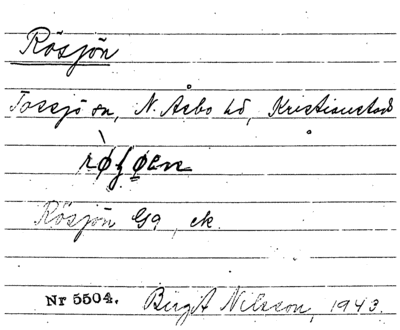 Rösjön
Tossjö sn, N. Åsbo hd, Kristianstads
Rösjön Ga, ek.
Nr 5504. Birgit Nilsson, 1943.